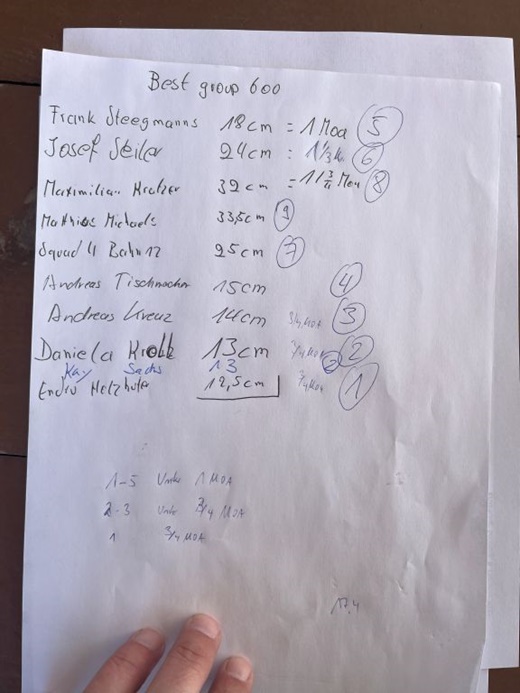 Best group 600
Frank Steegmanns 18cm = 1 Moa 5
Josef Seiler 24cm : 1 1/3 6
Maximilian 32cm = 1 3/4 Moa 8
Matthias Michaels 33,5cm 9
Squad 4 Bahn 12 25cm 7
Andreas 15cm 4
Andreas Kreuz 14cm 3/4 MOA 3
Daniela 13cm 3/4 MOA 2
Kay Sachs 13 2
12,5cm 3/4 MOA 1
1-5 Unter 1 MOA
2-3 Unter 3/4 MOA
1 3/4 MOA